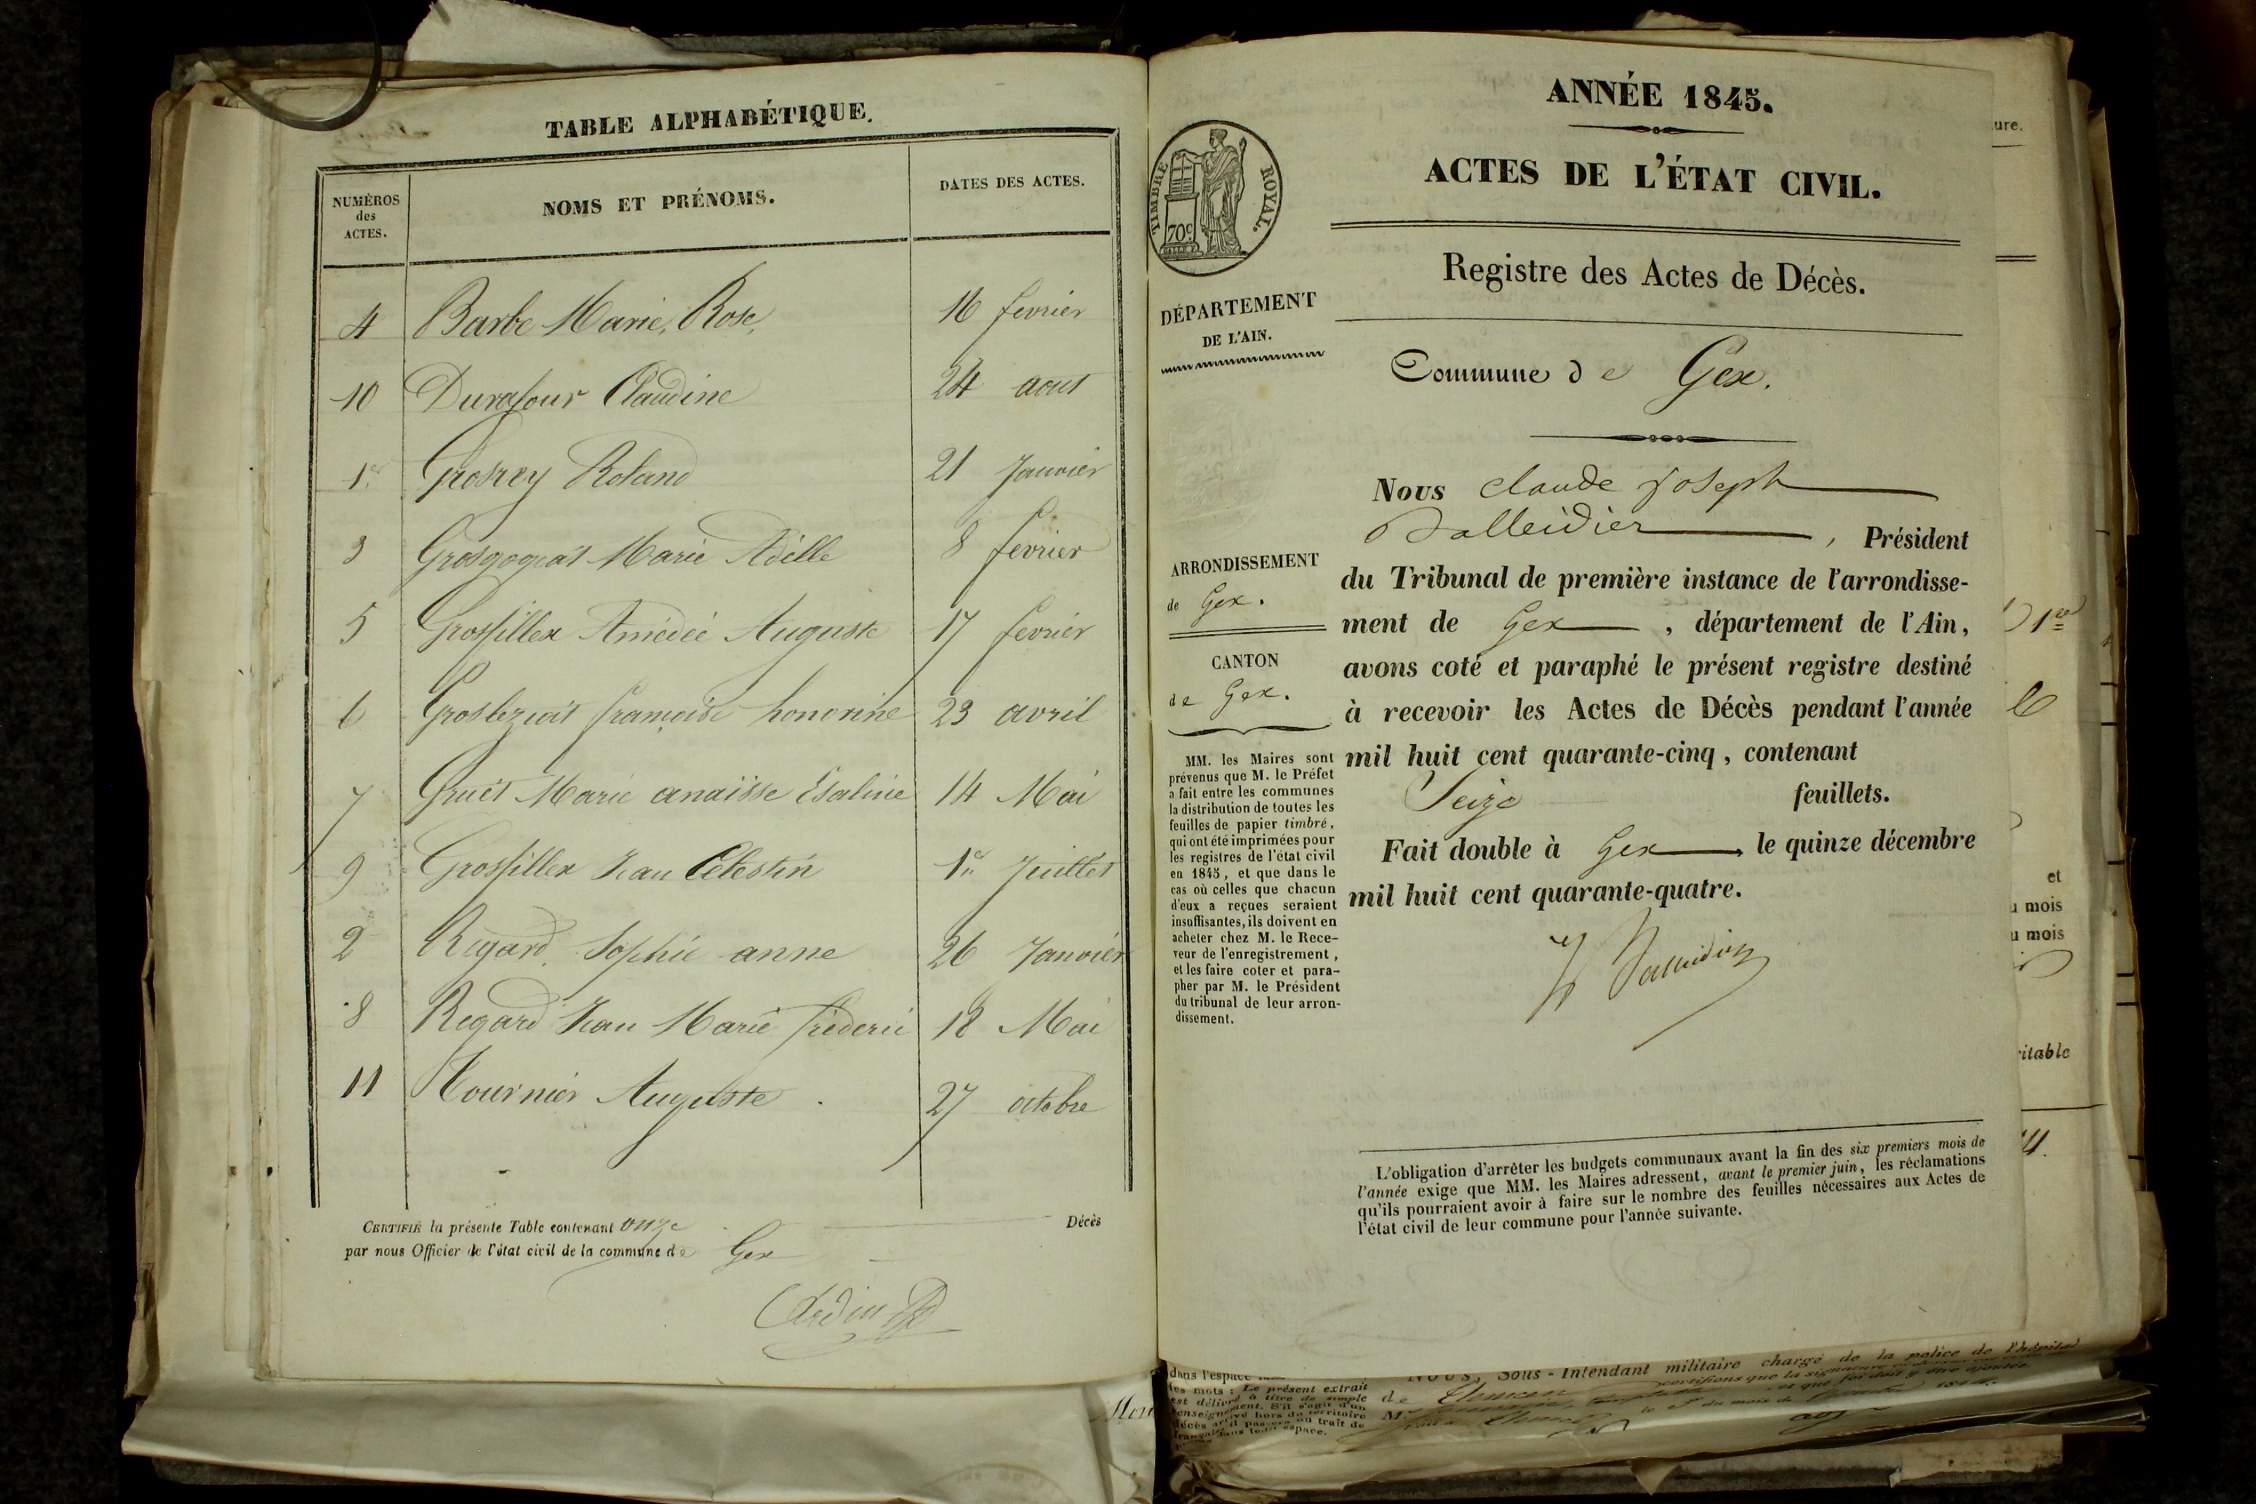 TABLE ALPHABÉTIQUE.
NUMÉROS des ACTES. NOMS ET PRÉNOMS. DATES DES ACTES.
4 Barbe Marie, Rose, 16 fevrier
10 Durafour Claudine 24 aout
1er Grosrey Roland 21 Janvier
3 Grosgogeat Marie Adélle 8 fevrier
5 Grosfillex Amédée Auguste 17 fevrier
6 françoise honorine 23 avril
7 Gruet Marie anaïsse 14 Mai
9 Grosfillex Jean Célestin 1er Juillet
2 Regard Sophie anne 26 Janvier
8 Regard Jean Marie fréderic 18 Mai
11 Tournier Auguste. 27 octobre
CERTIFIÉ la présente Table contenant onze Décès
par nous Officier de l'état civil de la commune de Gex
ANNÉE 1845.
ACTES DE L'ÉTAT CIVIL.
TIMBRE ROYAL.
70c
Registre des Actes de Décès.
DÉPARTEMENT
DE L'AIN.
Commune de Gex.
Nous claude joseph
Balleidier, Président
du Tribunal de première instance de l'arrondisse-
ment de Gex, département de l'Ain,
avons coté et paraphé le présent registre destiné
à recevoir les Actes de Décès pendant l'année
mil huit cent quarante-cinq, contenant
Seize feuillets.
Fait double à Gex, le quinze décembre
mil huit cent quarante-quatre.
Balleidier
ARRONDISSEMENT
de Gex.
CANTON
de Gex.
MM. les Maires sont
prévenus que M. le Préfet
a fait entre les communes
la distribution de toutes les
feuilles de papier timbré,
qui ont été imprimées pour
les registres de l'état civil
en 1845, et que dans le
cas où celles que chacun
d'eux a reçues seraient
insuffisantes, ils doivent en
acheter chez M. le Rece-
veur de l'enregistrement,
et les faire coter et para-
pher par M. le Président
du tribunal de leur arron-
dissement.
L'obligation d'arrêter les budgets communaux avant la fin des six premiers mois de
l'année exige que MM. les Maires adressent, avant le premier juin, les réclamations
qu'ils pourraient avoir à faire sur le nombre des feuilles nécessaires aux Actes de
l'état civil de leur commune pour l'année suivante.
ure.
et
u mois
u mois
ritable
dans l'espace
les mots : Le présent extrait
est délivré à titre de simple
renseignement. S'il s'agit d'un
décès arrivé hors du territoire
français
Nous, Sous-Intendant militaire chargé de la police de l'hôpital
de
certifions que la signature
et que foi doit y être ajoutée.